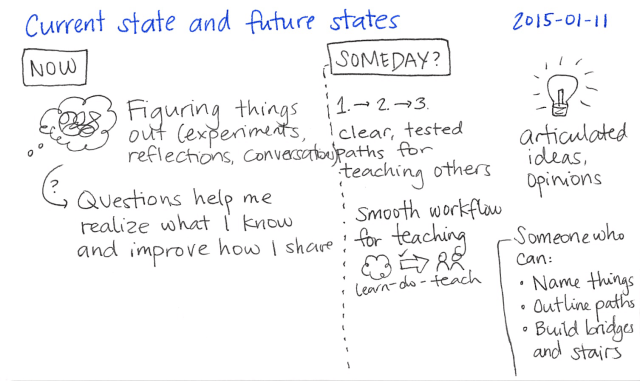 Current state and future states
2015-01-11
NOW
Figuring things
out (experiments,
reflections, conversations)
?
Questions help me
realize what I know
and improve how I share
SOMEDAY?
1. → 2. → 3.
clear, tested
paths for
teaching others
smooth workflow
for teaching
learn-do-teach
articulated
ideas,
opinions
Someone who
can:
• Name things
• Outline paths
• Build bridges
and stairs